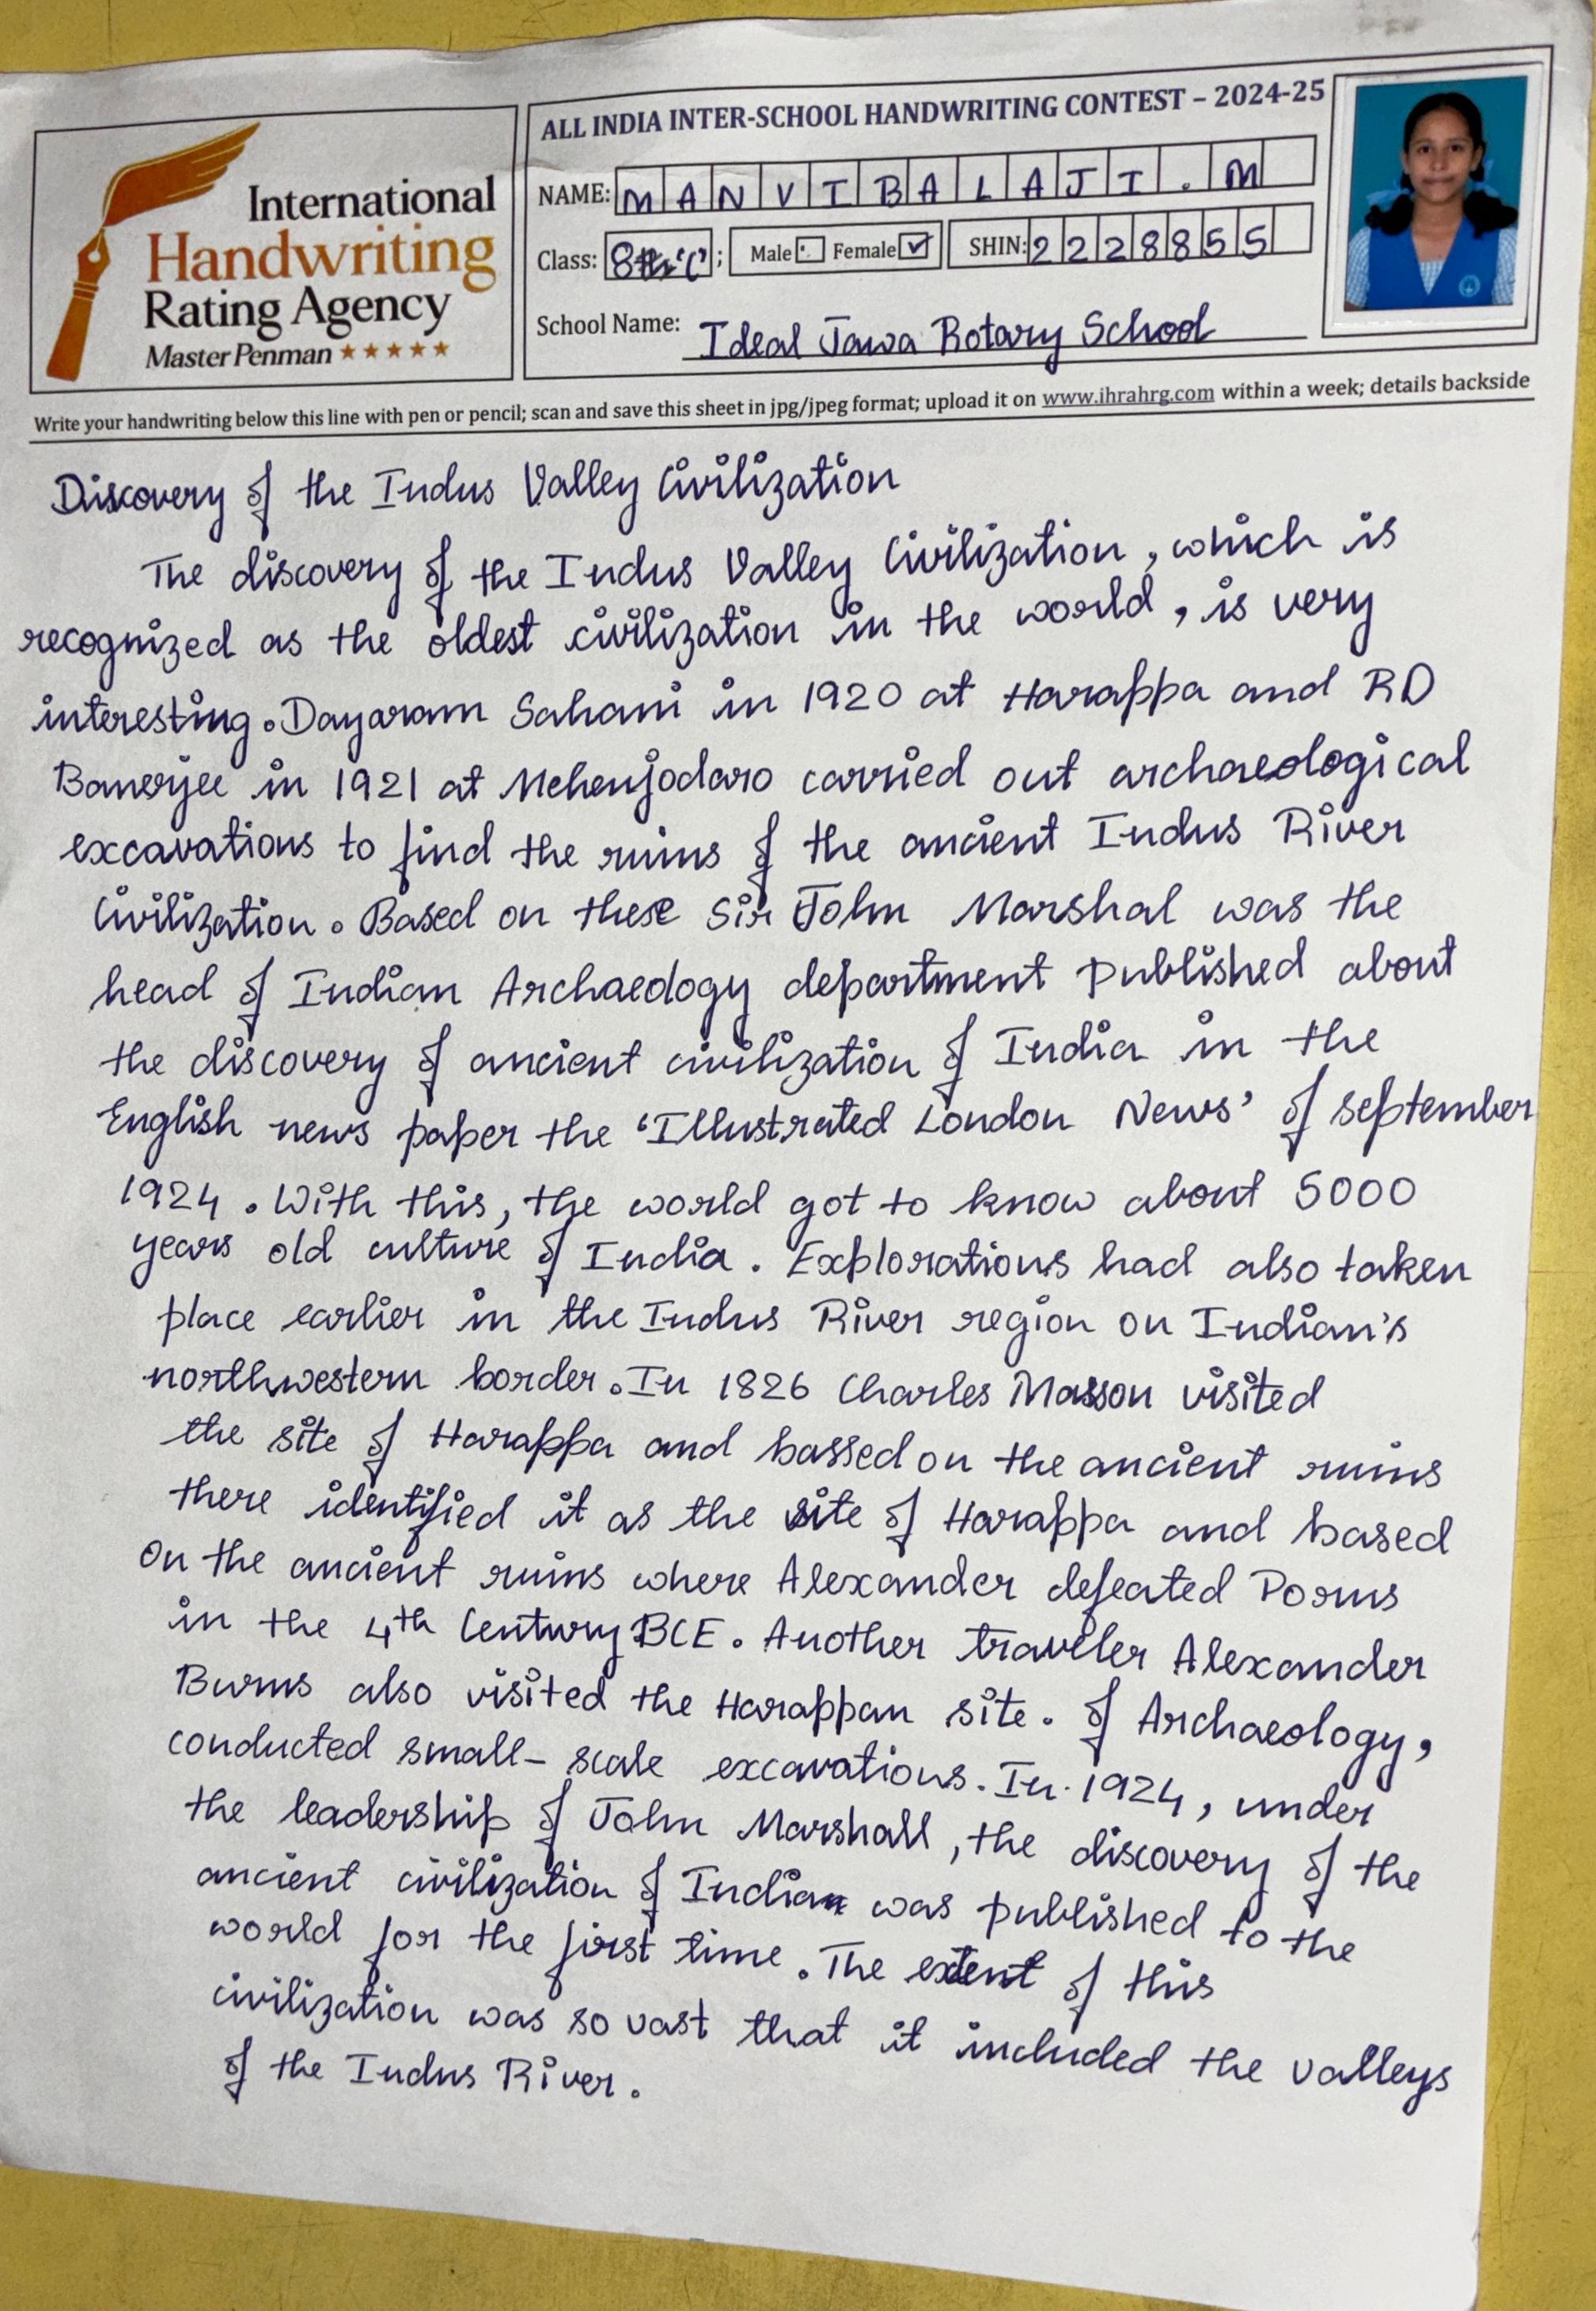 International
Handwriting
Rating Agency
Master Penman
ALL INDIA INTER-SCHOOL HANDWRITING CONTEST – 2024-25
NAME: MANVIBALAJI.M
Class: 8th 'C'; Male Female ✓ SHIN: 2228855
School Name: Ideal Jawa Rotary School
Write your handwriting below this line with pen or pencil; scan and save this sheet in jpg/jpeg format; upload it on www.ihrahrg.com within a week; details backside
Discovery of the Indus Valley Civilization
The discovery of the Indus Valley Civilization, which is
recognized as the oldest civilization in the world, is very
interesting. Dayaram Sahani in 1920 at Harappa and RD
Banerjee in 1921 at Mehenjodaro carried out archaeological
excavations to find the ruins of the ancient Indus River
Civilization. Based on these Sir John Marshal was the
head of Indian Archaeology department published about
the discovery of ancient civilization of India in the
English news paper the 'Illustrated London News' of september
1924. With this, the world got to know about 5000
years old culture of India. Explorations had also taken
place earlier in the Indus River region on Indian's
northwestern border. In 1826 Charles Masson visited
the site of Harappa and bassed on the ancient ruins
there identified it as the site of Harappa and based
on the ancient ruins where Alexander defeated Porus
in the 4th Century BCE. Another traveler Alexander
Burns also visited the Harappan site. of Archaeology,
conducted small-scale excavations. In 1924, under
the leadership of John Marshall, the discovery of the
ancient civilization of Indian was published to the
world for the first time. The extent of this
civilization was so vast that it included the valleys
of the Indus River.